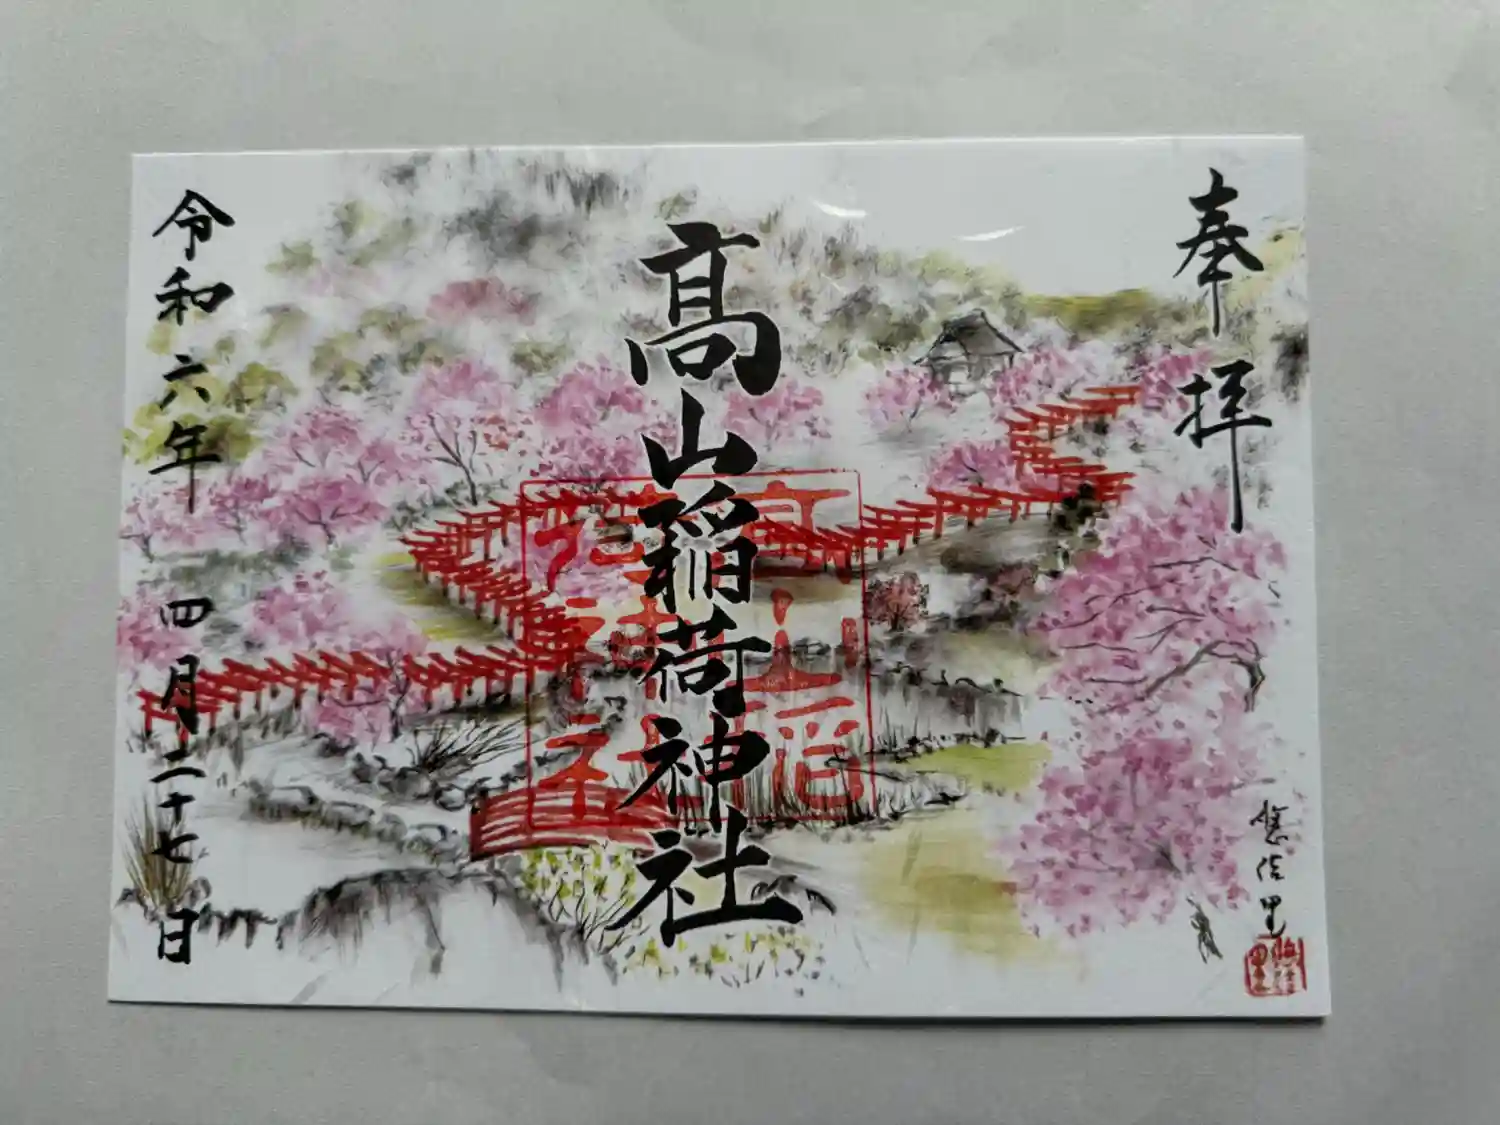 奉拝
髙山稲荷神社
高山稲荷神社
令和六年四月二十七日